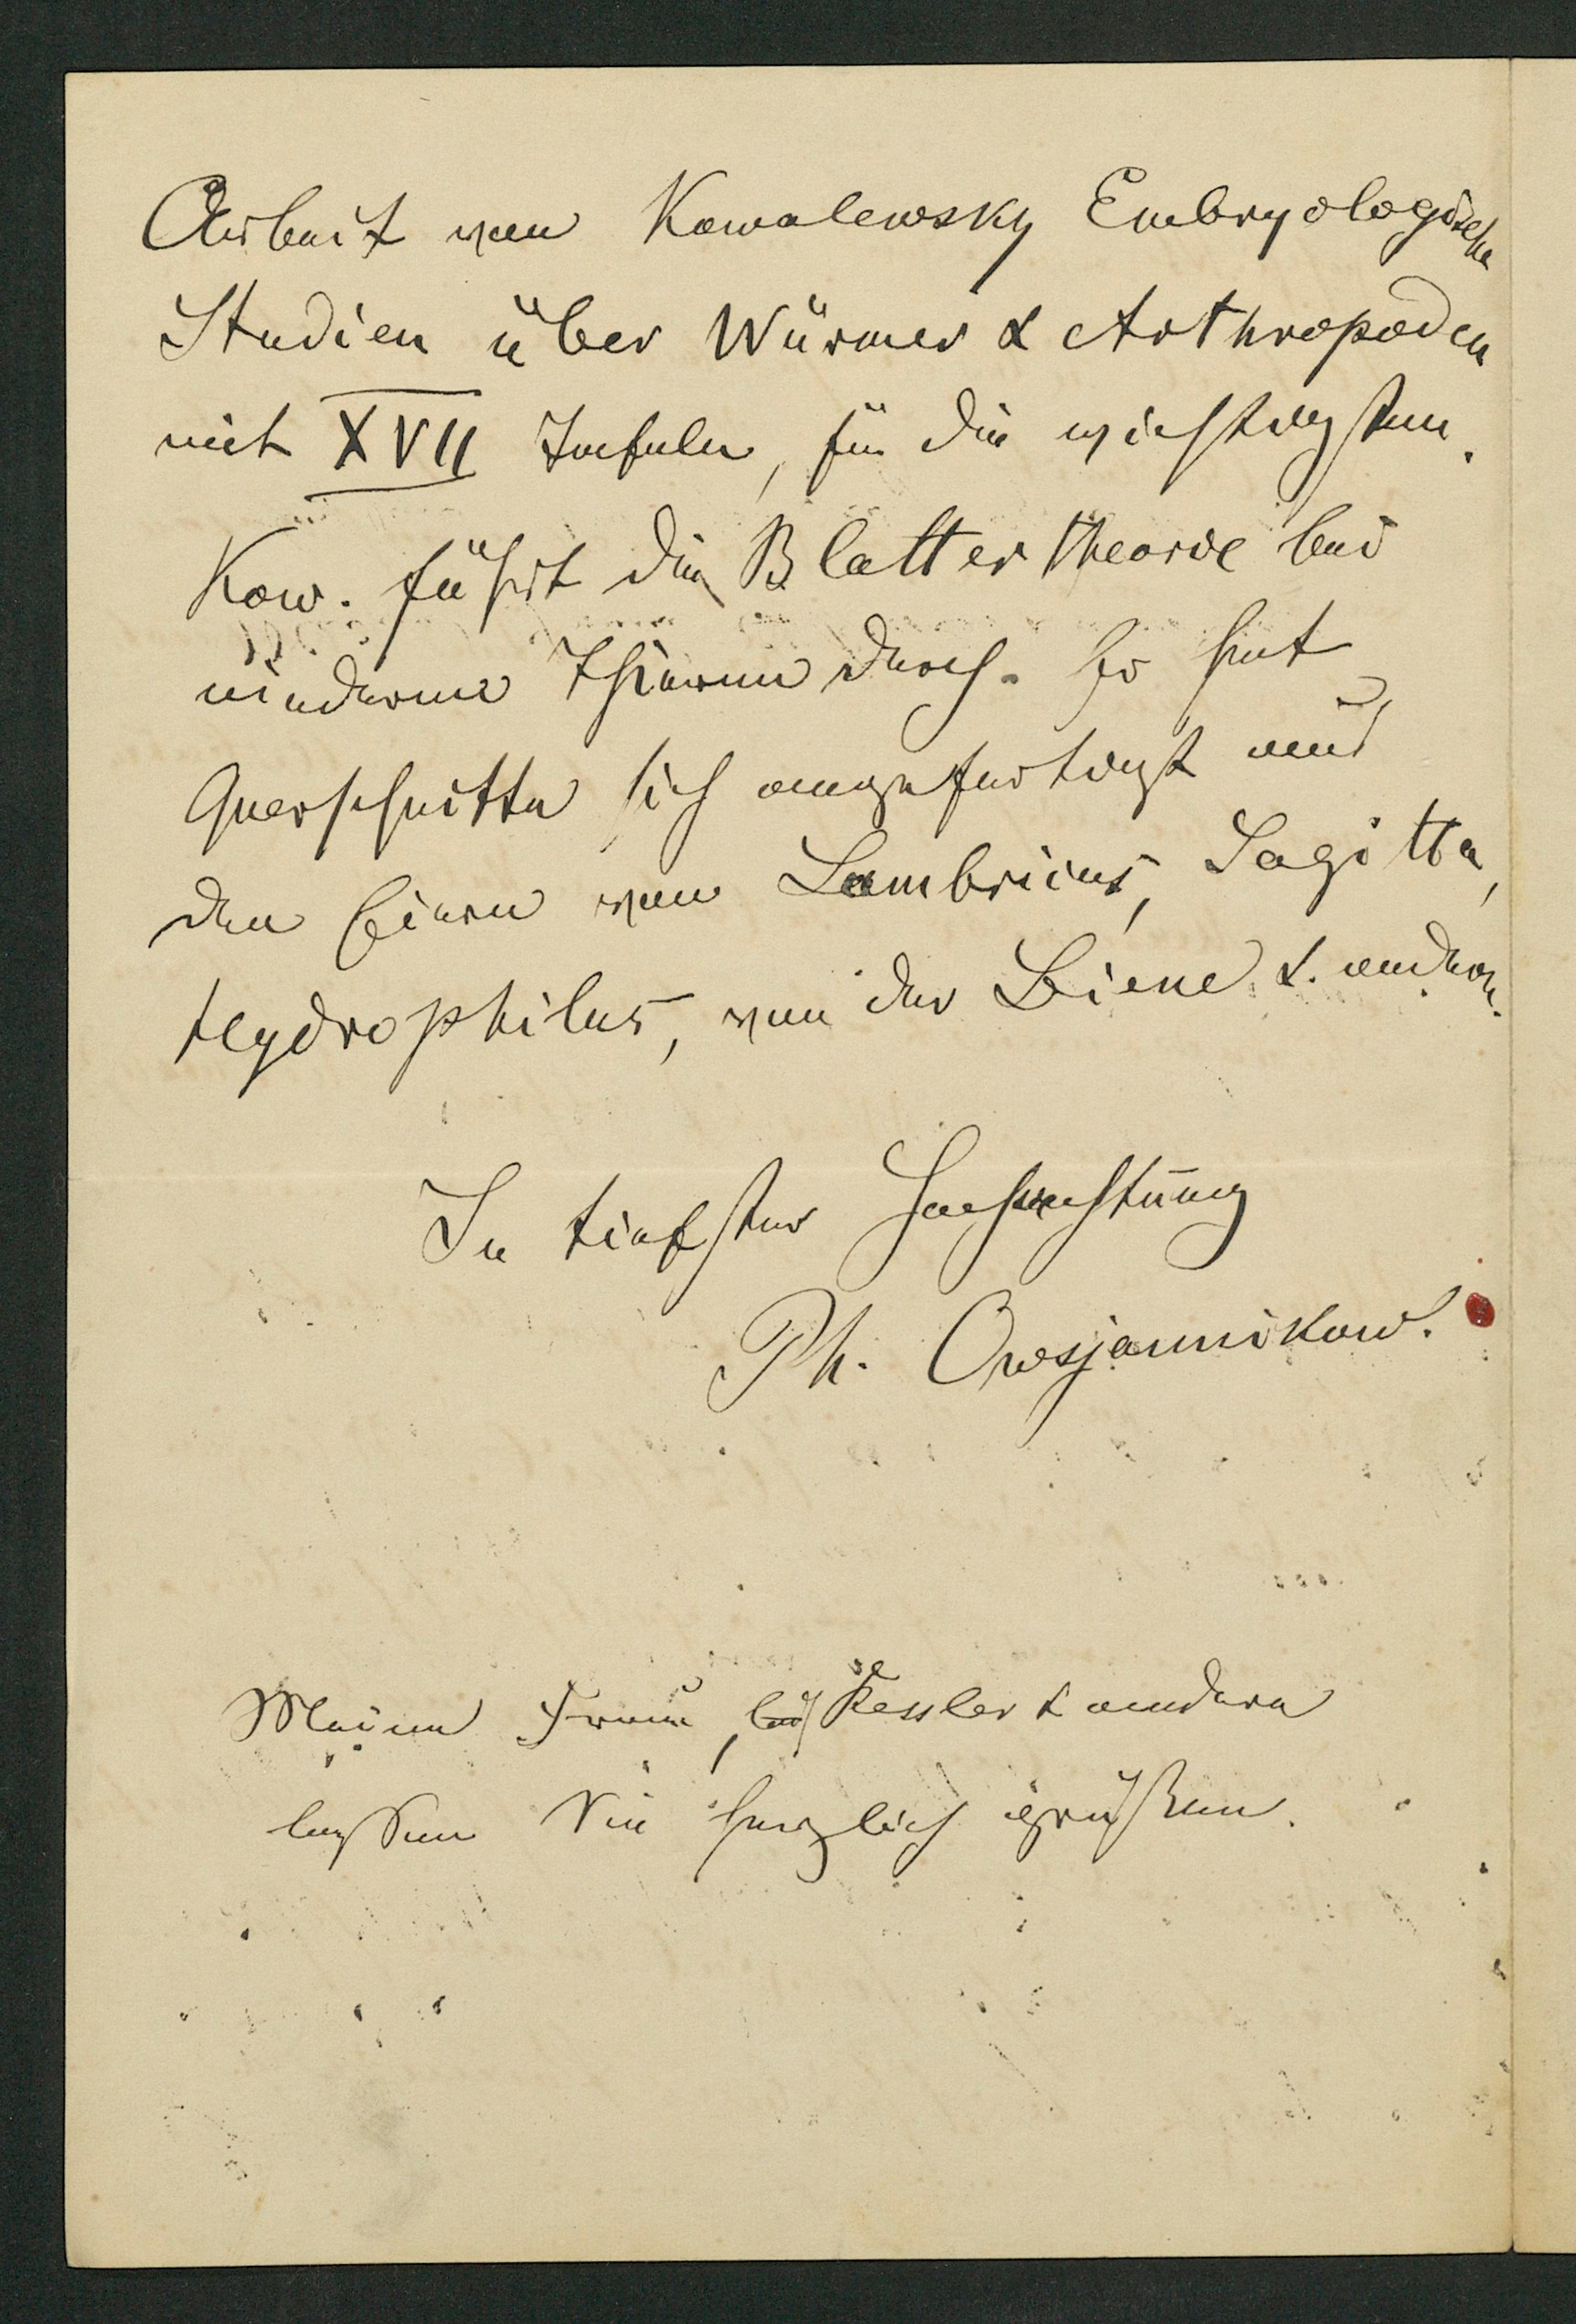 Arbeit von Kowalewsky Embryologische
Studien über Würmer & Arthropoden
mit XVII Tafeln, für die wichtigsten.
Kow. führt die Blattertheorie bei
niederen Thieren durch. Er hat
Querschnitte sich angefertigt aus
den Eiern von Lumbricus, Sagitta,
Hydrophilus, von der Biene & andern.
In tiefster Hochachtung
Ph. Owsjannikow.
Meine Frau, Kessler & andere
lassen Sie herzlich grüßen.